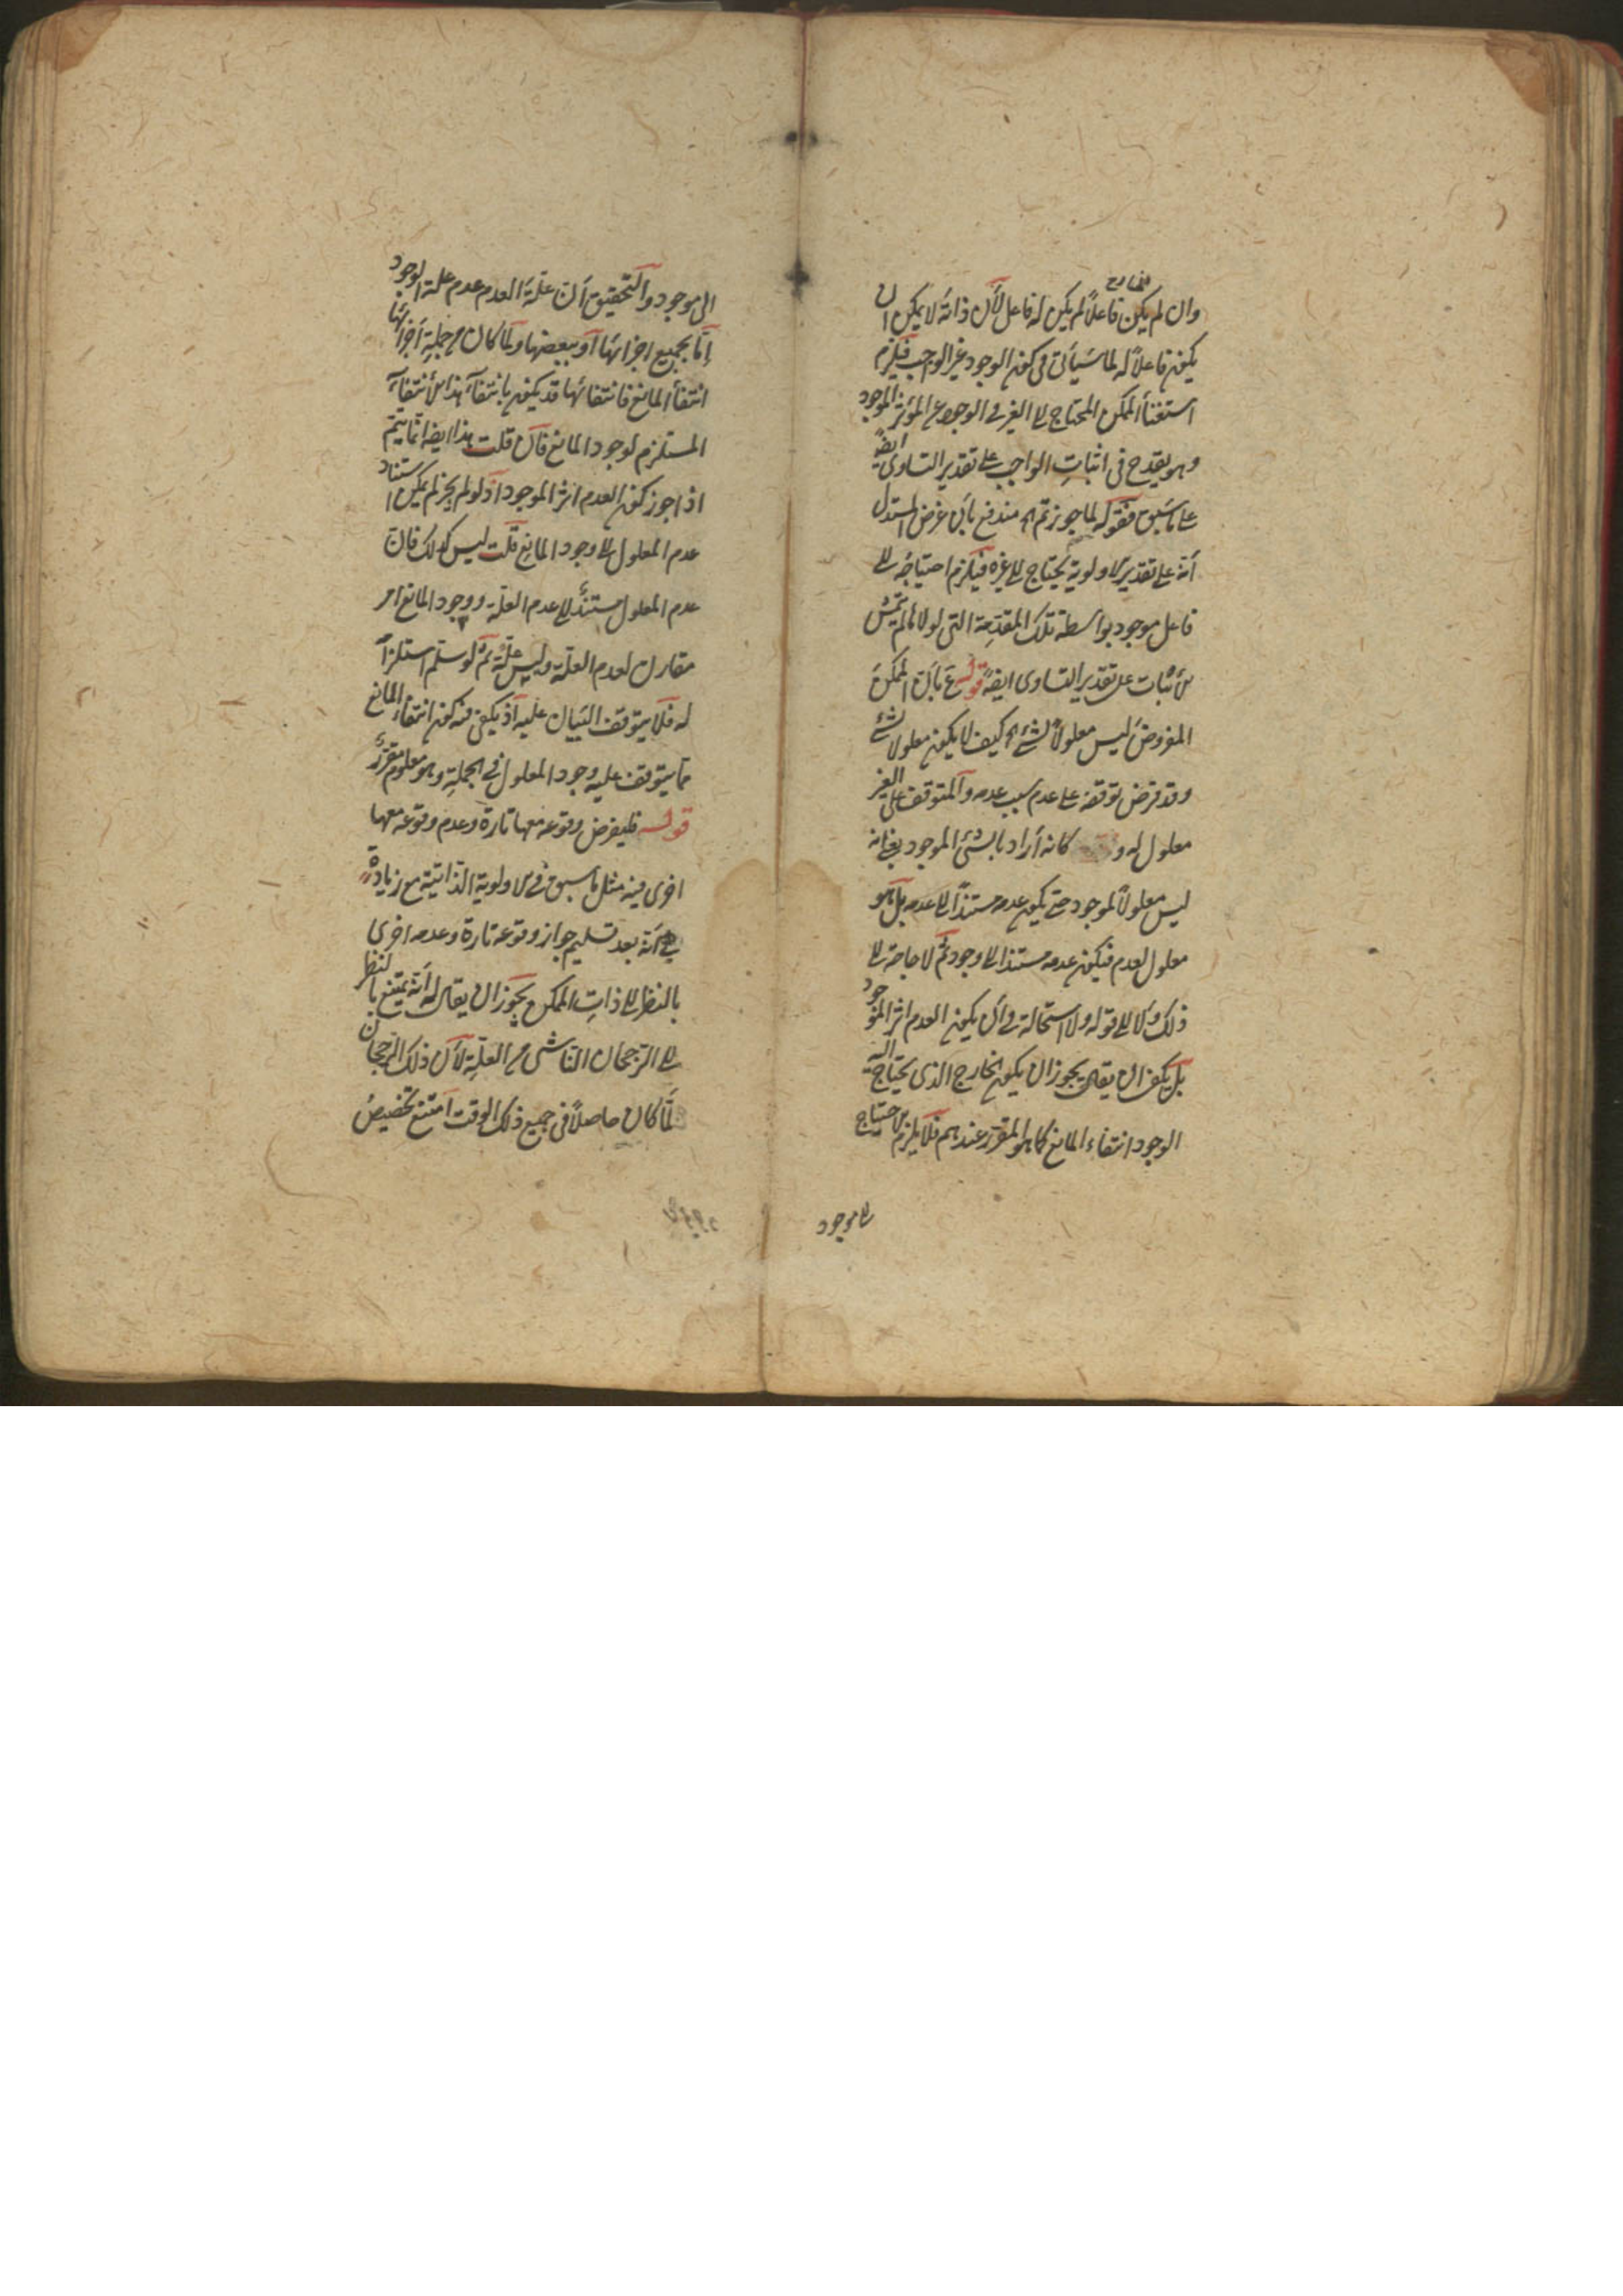 الخارج
وان لم يكن فاعلاً لم يكن له فاعل لأن ذاته لا يمكن ان
يكون فاعلاً له لما سيأتى فى كون الوجود غير الواجب فيلزم
استغنأ الممكن المحتاج الى الغير فى الوجود عن المؤثر الموجود
وهو يقدح فى اثبات الواجب على تقدير التساوى ايضً
على ما سبق فقوله لما جوزتم الخ مندفع بأن غرض المستدل
أنه على تقدير الاولوية يحتاج الى غيره فيلزم احتياجه الى
فاعل موجود بواسطة تلك المقدمة التى لولاها لم تتمش
الاثبات على تقدير التساوى ايضً قوله ع بان الممكن
المفروض ليس معلولاً لشئ الخ كيف لا يكون معلولا لشئ
وقد فرض توقفه على عدم سبب عدمه والمتوقف على الغير
معلول له و كانه أراد بالشئ الموجود يعنى انه
ليس معلولاً لموجود حتى يكون عدمه مستنداً الى عدمه بل هو
معلول لعدم فيكون عدمه مستندا الى وجود ثم لا حاجة الى
ذلك ولا الى قوله ولا استحالة فى أن يكون العدم اثر الموجود
بل يكفى ان يقال يجوز ان يكون الخارج الذى يحتاج اليه
الوجود انتفاء المانع كما هو المقرر عندهم فلا يلزم الاحتياج
الى موجود
الى موجود والتحقيق أن علة العدم عدم علة الوجود
إمّا بجميع اجزائها أو ببعضها ولما كان من جملة أجزائها
انتفأ المانع فانتفائها قد يكون بانتفآء هذا الأنتفآء
المستلزم لوجود المانع فان قلت هذا ايضا انما يتم
اذا جوز كون العدم اثر الموجود اذ لو لم يجز لم يكن استناد
عدم المعلول الى وجود المانع قلت ليس كذلك فان
عدم المعلول مستند الى عدم العلة ووجود المانع امر
مقارن لعدم العلة وليس علة ثم لو سلم استلزامً
له فلا يتوقف البيان عليه اذ يكفى فيه كون انتفاء المانع
مما يتوقف عليه وجود المعلول فى الجملة وهو معلوم مقرر
قوله فليفرض وقوعه معها تارة وعدم وقوعه معها
اخرى فيه مثل ما سبق فى الاولوية الذاتية مع زيادة
هى أنه بعد تسليم جواز وقوعه تارة وعدمه اخرى
بالنظر الى ذات الممكن يجوز ان يقال له أنه يمتنع بالنظر
الى الترجحان الناشى من العلة لأن ذلك الرجحان
لمّا كان حاصلاً فى جميع ذلك الوقت امتنع تخصيص